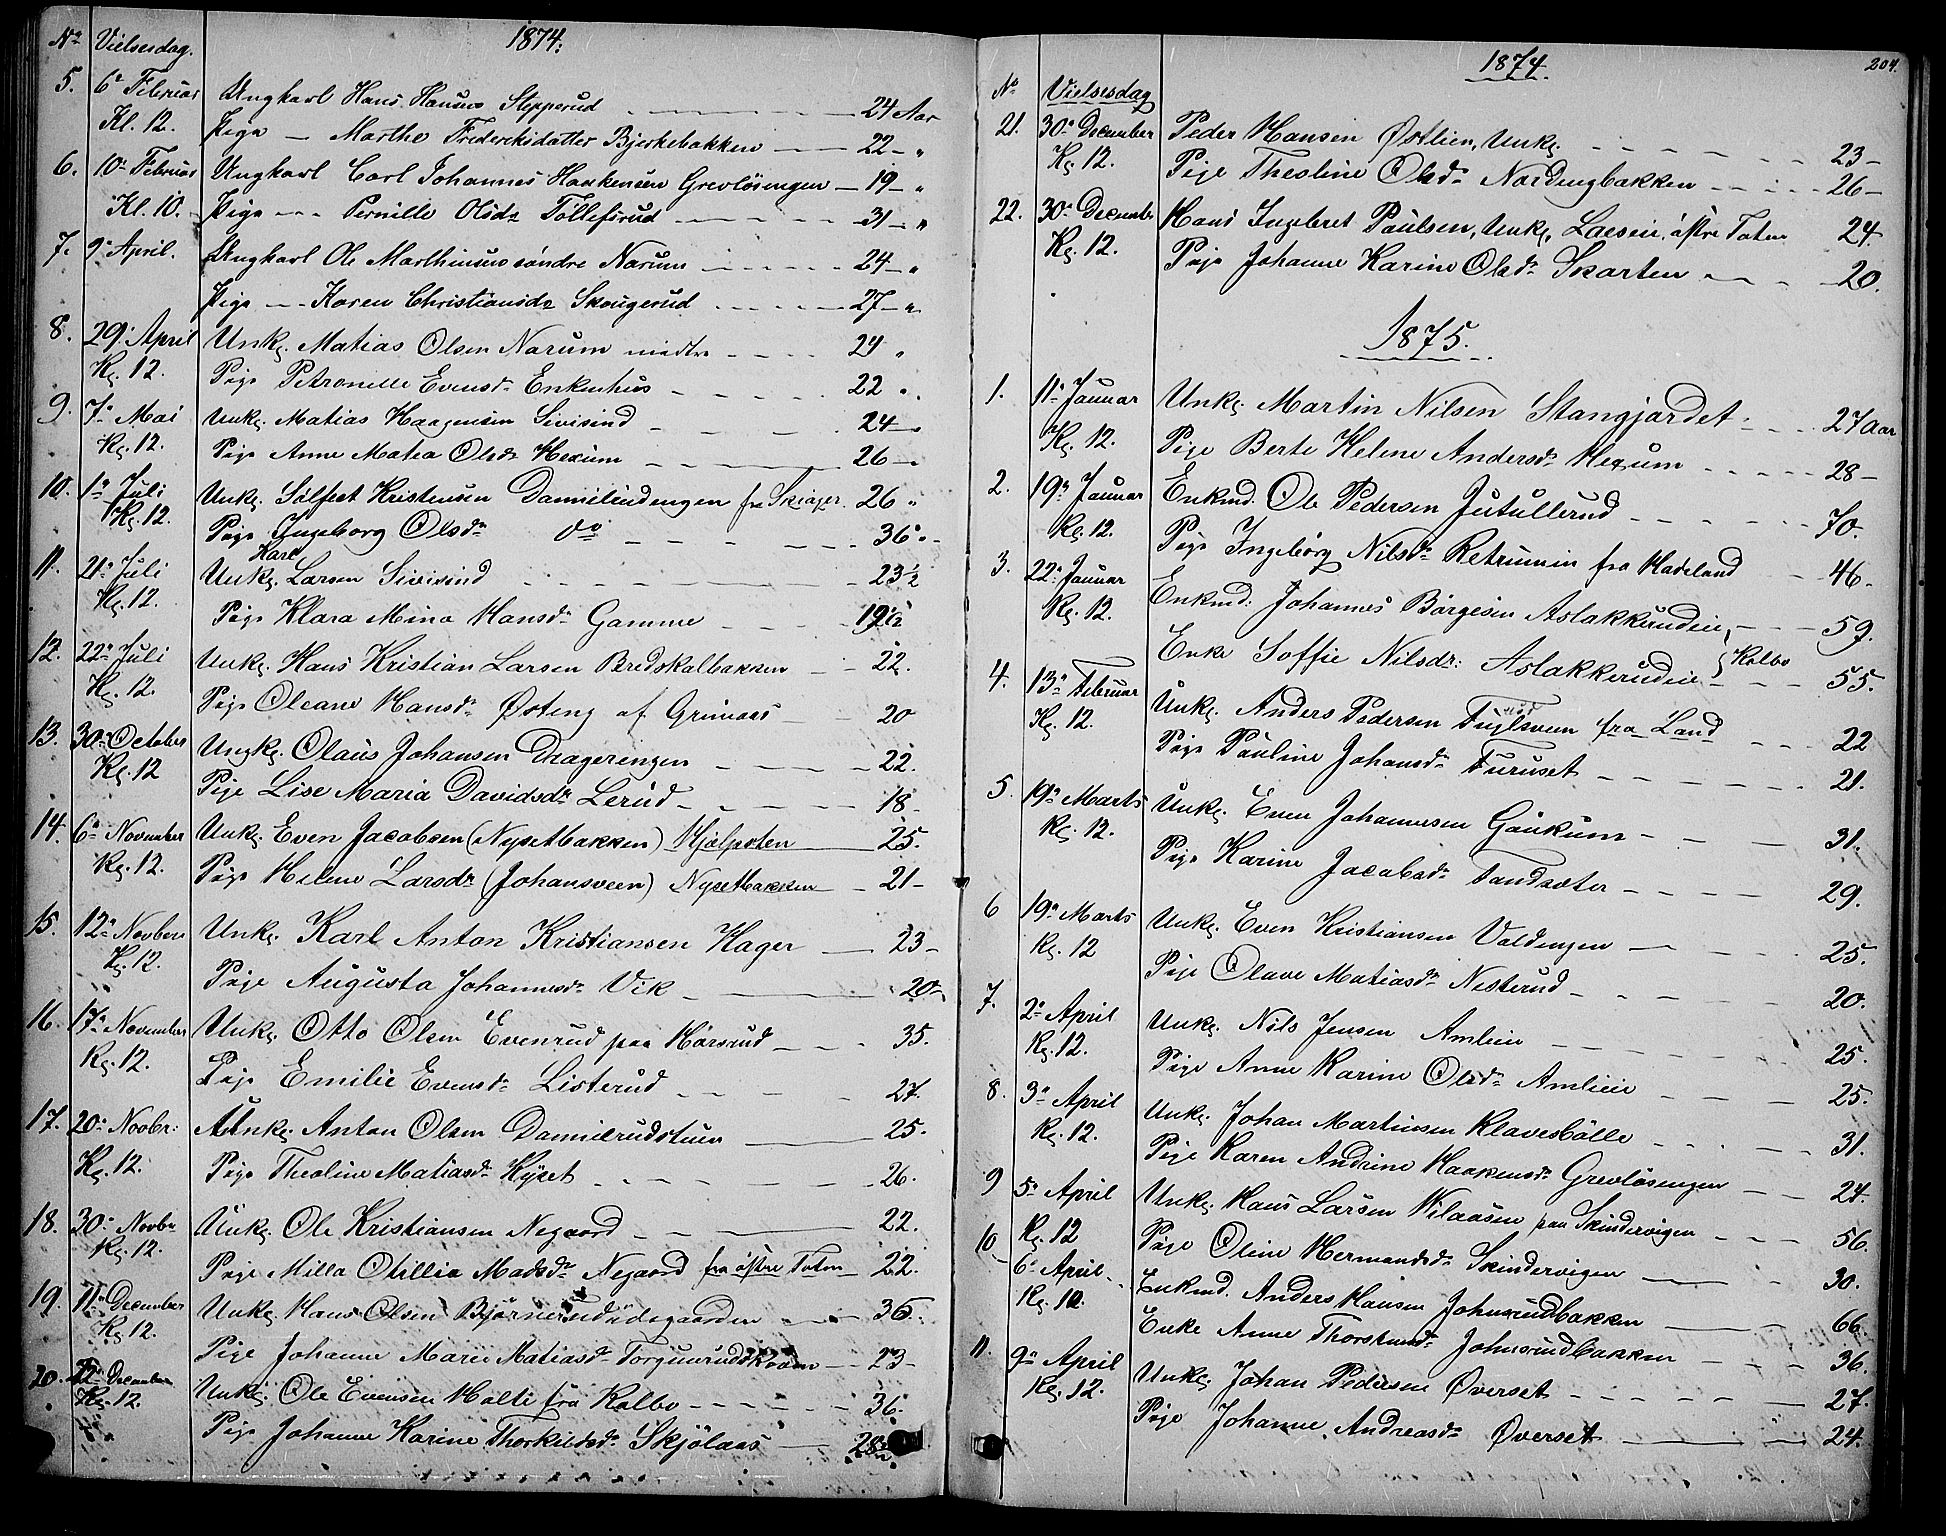 1874.
No Vielsesdag.
5. 6te Februar Ungkarl Hans Hansen Stepperud 24 Aar
Kl. 12. Pige Marthe Frederiksdatter Bjerkebakken 22 "
6. 10de Februar Ungkarl Carl Johannes Haakensen Grevlösengen 19 "
Kl. 10. Pige Pernille Olsdr Tollefsrud 31 "
7. 9de April. Ungkarl Ole Marthinsen söndre Narum 24 "
Pige Karen Christiansdr Skougerud 27 "
8. 29de April Unkg. Matias Olsen Narum nedre 24 "
Kg. 12. Pige Petronelle Evensdr Enkenhus 22 "
9. 7de Mai Unkg. Matias Haagensen Sivisind 24
Kg. 12. Pige Anne Matea Olsdr Hexum 26
10. 1de Juli Unkg. Kristensen fra Skiager. 26 "
Kg. 12. Pige Ingeborg Olsdr do 36
Karl
11. 21de Juli Unkg. Larsen Sivisind 23½
Kg. 12. Pige Klara Mina Hansdr Gamme 19½
12. 22de Juli Unkg. Hans Kristian Larsen Bredskalbakken 22.
Kg. 12. Pige Oleane Hansdr Østeng af Grunaas 20
13. 30de October Ungkg. Olaus Johansen Dragerengen 22.
Kg. 12 Pige Lise Maria Davidsdr Lerud 18
14. 6te November Unkg. Even Jacobsen (Nysetbakken) Hjelpsten 25.
Kg. 12. Pige Helene Larsdr (Johansveen) Nysetbakken 21
15. 12te Novbere Unkg. Karl Anton Kristiansen Hager 23
Kg. 12. Pige Augusta Johannesdr Vik 20
16. 17de November Unkg. Otto Olsen Evenrud paa Hörsrud 35.
Kg. 12. Pige Emilie Evensdr Listerud 27.
17. 20de Novbr: Unkg. Anton Olsen Danielrudstuen 25.
Kg. 12. Pige Theoline Matiasdr Hyset 26.
18. 30de Novbr Unkg. Ole Kristiansen Negaard 22.
Kg. 12. Pige Milla Otillia Madsdr Negaard fra östre Toten 22.
19. 11te December Unkg. Hans Olsen Björnerudödegaarden 36.
Kg. 12. Pige Johanne Marie Matiasdr 23
20. December Unkg. Ole Evensen Holte fra Kolbo 36.
Kg. 12. Pige Johanne Karine Thorkildsdr Skjölaas 28
1874.
204.
No Vielsesdag
21. 30de December Peder Hansen Østlien, Unkg. 23
Kg. 12. Pige Theoline Olsdr Nordengbakken 26
22. 30de December Hans Ingebret Paulsen, Unkg. östre Toten 24
Kg. 12. Pige Johanne Karine Olsdr Skarten 20.
1875.
1. 11te Januar Unkg. Martin Nilsen Stangjordet 27 Aar
Kg. 12. Pige Berte Helene Andersdr Hexum 28
2. 19de Januar Enkmd. Ole Pedersen Jutullerud 70.
Kg. 12. Pige Ingeborg Nilsdr fra Hadeland 46
3. 22de Januar Enkmd: Johannes Börgesen Aslakkerudeie 59.
Kg. 12. Enke Soffie Nilsdr: Aslakkerudeie } Kolbo 55.
4. 13de Februar Unkg. Anders Pedersen fra Land 22
Kg. 12. Pige Pauline Johansdr Furuset 21.
5. 19de Marts Unkg. Even Johannesen Gaukum 31.
Kg. 12. Pige Karine Jacobsdr Tandsæter 29.
6 19de Marts Unkg. Even Kristiansen Voldengen 25.
Kg. 12 Pige Olave Matiasdr Nesterud 20.
7. 2de April Unkg. Nils Jensen Amlien 25.
Kg. 12. Pige Anne Karine Olsdr Amlien 25.
8. 3de April Unkg. Johan Martinsen Klavesbölle 31.
Kg. 12. Pige Karen Andrine Haakensdr Grevlösengen 24
9 5te April Unkg. Hans Larsen Vilaasen paa Skindervigen 56.
Kg. 12 Pige Oline Hermandsdr Skindervigen 30.
10 6te April Enkmd. Anders Hansen Johnsrudbakken 66
Kg. 10. Enke Anne Johnsrudbakken 36.
11. 9de April Unkg. Johan Pedersen Øverset 27.
Kg. 12. Pige Johanne Andreasdr Øverset 24.